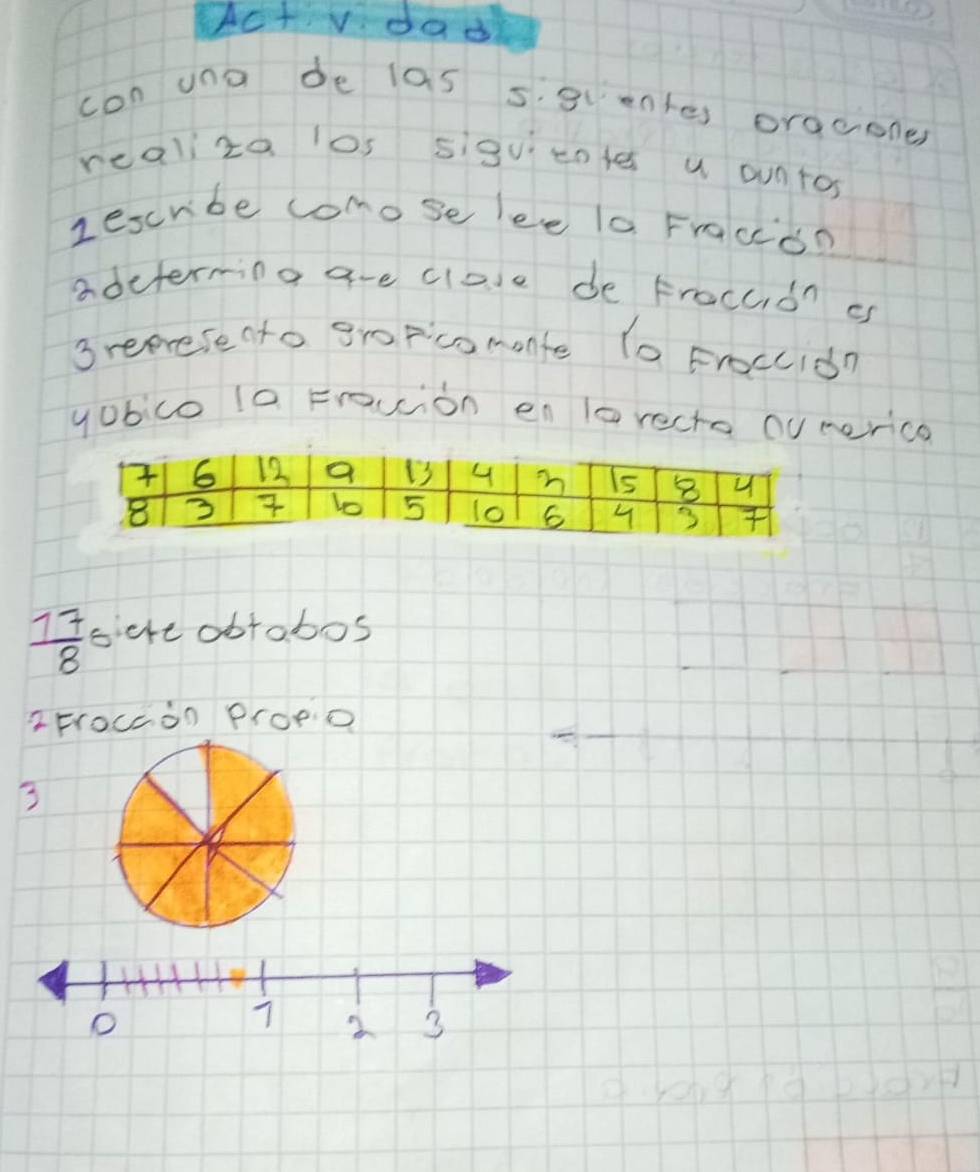 Actividad
con una de las siguientes oraciones
realiza los siguientes 4 puntos
1 escribe como se lee la Fracción
2 determina que clase de Fracción es
3 represento graficamente la Fracción
y obico la Fracción en la recta numerica
7 6 12 9 13 4 2 15 8 4
8 3 7 10 5 10 6 4 3 7
1 7/8 siete obtabos
2 Fracción Propia
3
0 1 2 3